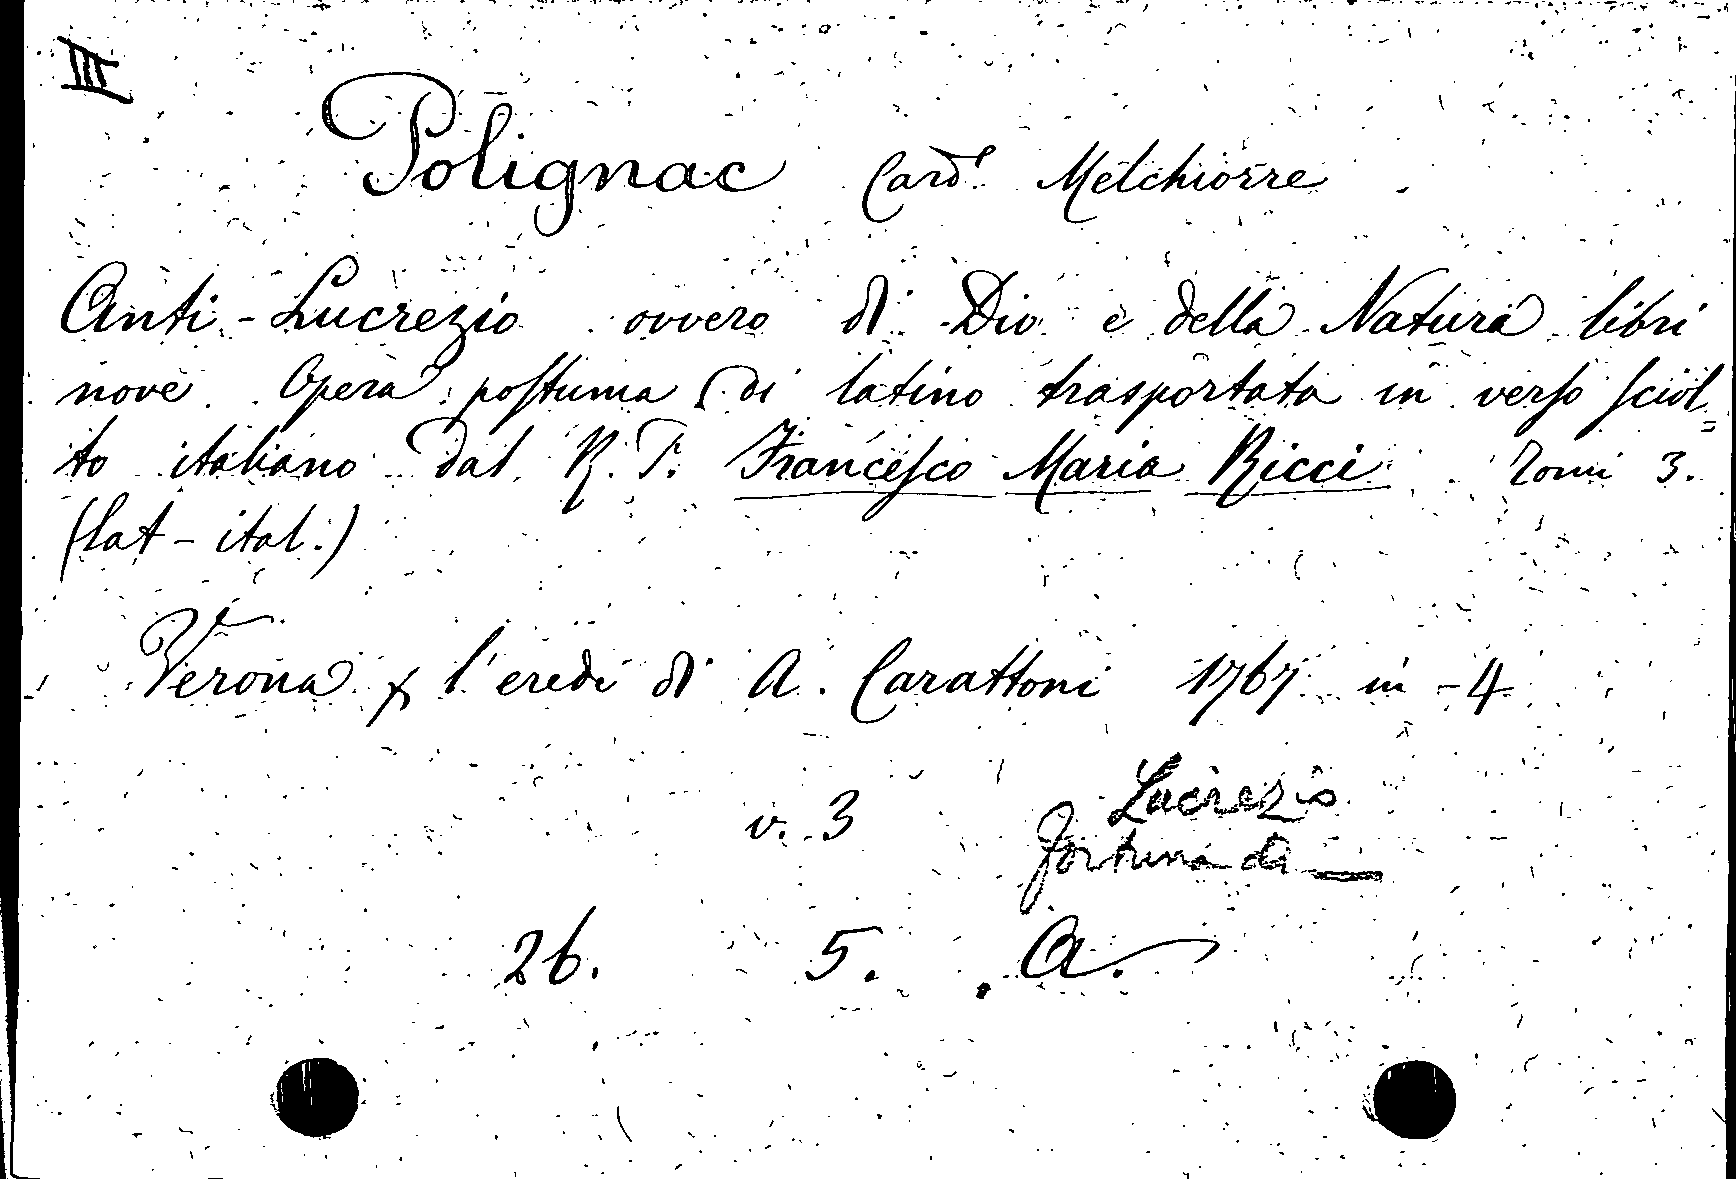 III
Polignac Card.l Melchiorre
Anti-Lucrezio ovvero di Dio e della Natura libri
nove. Opera postuma di latino trasportata in verso sciol=
to italiano dal R. P. Francesco Maria Ricci Tomi 3.
(lat-ital.)
Verona l'eredi di A. Carattoni 1767 in-4
v. 3
Lucrezio
fortuna di —
26. 5. A.